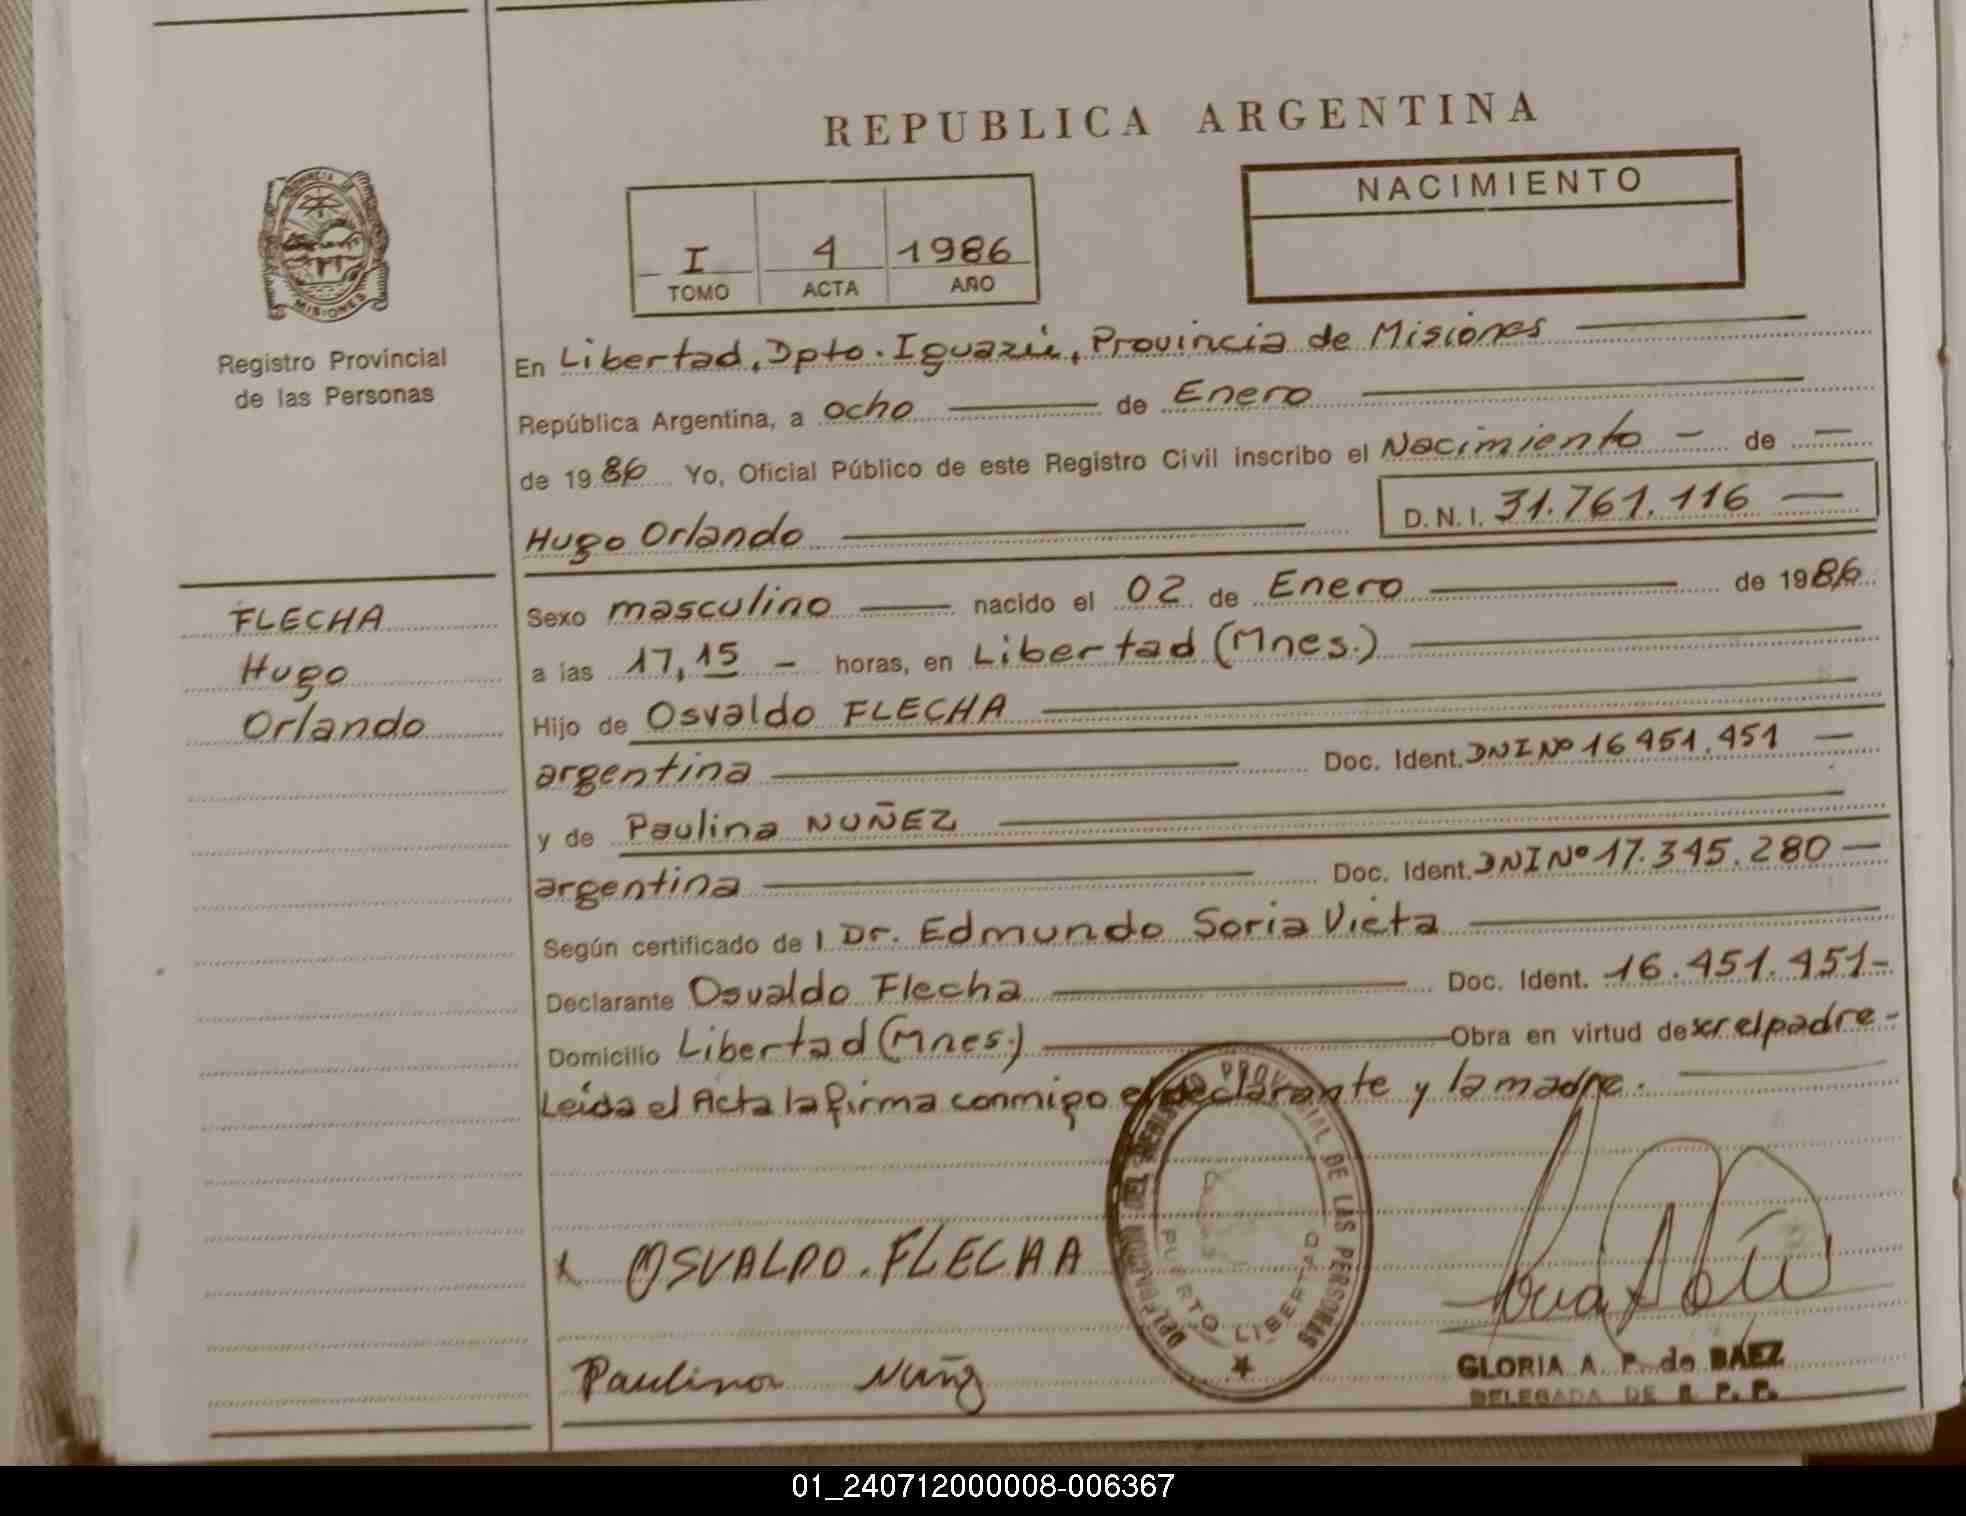 REPUBLICA ARGENTINA
NACIMIENTO
I 4 1986
TOMO ACTA AÑO
PROVINCIA DE MISIONES
Registro Provincial
de las Personas
En Libertad, Dpto. Iguazú, Provincia de Misiones
República Argentina, a ocho de Enero
de 1986 Yo, Oficial Público de este Registro Civil inscribo el Nacimiento - de -
Hugo Orlando D.N.I. 31.761.116 -
FLECHA
Hugo
Orlando
Sexo masculino nacido el 02 de Enero de 1986
a las 17,15 - horas, en Libertad (Mnes.)
Hijo de Osvaldo FLECHA
argentina Doc. Ident. DNI Nº 16 451.451 -
y de Paulina NUÑEZ
argentina Doc. Ident. DNI Nº 17.345.280 -
Según certificado de l Dr. Edmundo Soria Vieta
Declarante Osvaldo Flecha Doc. Ident. 16.451.451-
Domicilio Libertad (Mnes.) Obra en virtud de ser el padre -
Leída el Acta la firma conmigo el declarante y la madre.
DELEGACION DEL REGISTRO PROVINCIAL DE LAS PERSONAS
PUERTO LIBERTAD
x OSVALDO. FLECHA
Paulina Nuñz
GLORIA A. P. de BAEZ
DELEGADA DE R. P. P.
01_240712000008-006367